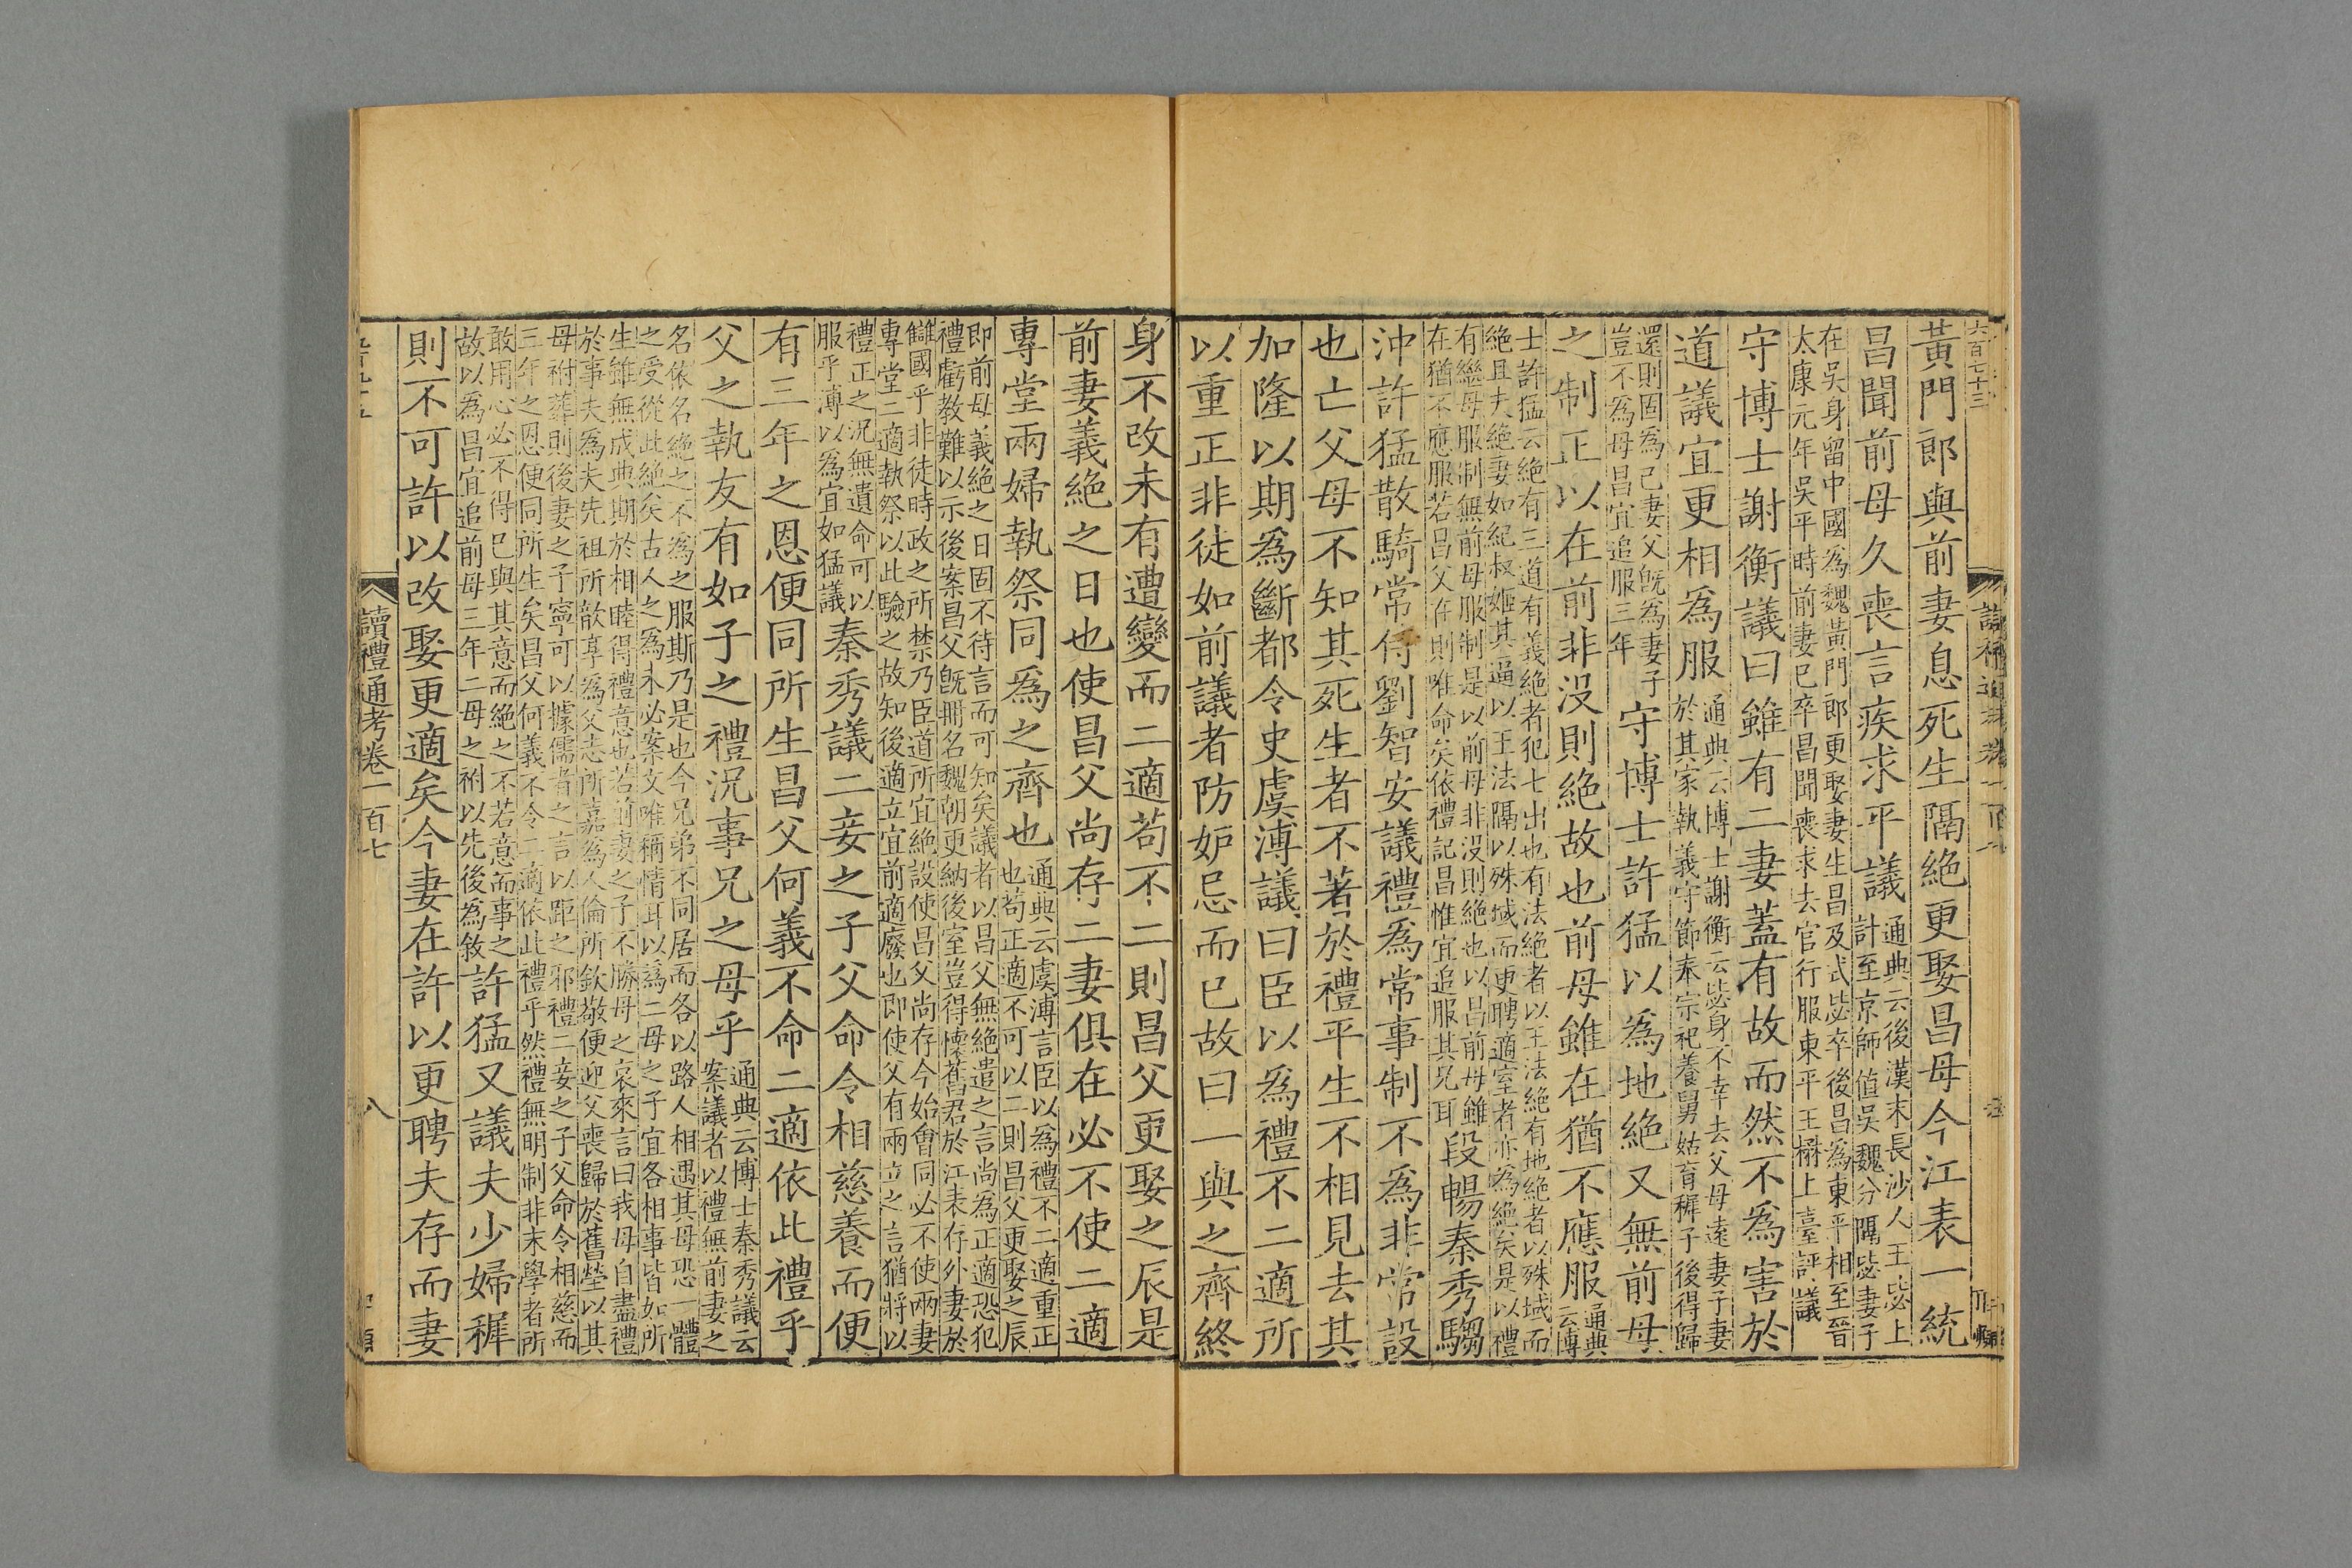 黃門郎與前妻息死生隔絶更娶昌母今江表一統
昌聞前母久喪言疾求平議通典云後漢末長沙人王毖上
計至京師値吳魏分隔毖妻子
在吳身留中國爲魏黃門郎更娶妻生昌及式毖卒後昌爲東平相至晉
太康元年吳平時前妻已卒昌聞喪求去官行服東平王楙上臺評議
守博士謝衡議曰雖有二妻蓋有故而然不爲害於
道議宜更相爲服通典云博士謝衡云毖身不幸去父母遠妻子妻
於其家執義守節奉宗祀養舅姑育稺子後得歸
還則固爲己妻父旣爲妻子
豈不爲母昌宜追服三年
守博士許猛以爲地絶又無前母
之制正以在前非没則絶故也前母雖在猶不應服通典
云博
士許猛云絶有三道有義絶者犯七出也有法絶者以王法絶有地絶者以殊域而
絶且夫絶妻如紀叔姬其逼以王法隔以殊域而更聘適室者亦爲絶矣是以禮
有繼母服制無前母服制是以前母非没則絶也以昌前母雖
在猶不應服若昌父在則唯命矣依禮記昌惟宜追服其兄耳
段暢秦秀騶
沖許猛散騎常侍劉智安議禮爲常事制不爲非常設
也亡父母不知其死生者不著於禮平生不相見去其
加隆以期爲斷都令史虞溥議曰臣以爲禮不二適所
以重正非徒如前議者防妒忌而已故曰一與之齊終
身不改未有遭變而二適苟不二則昌父更娶之辰是
前妻義絶之日也使昌父尚存二妻俱在必不使二適
專堂兩婦執祭同爲之齊也通典云虞溥言臣以爲禮不二適重正
也苟正適不可以二則昌父更娶之辰
即前母義絶之日固不待言而可知矣議者以昌父無絶遣之言尚爲正適恐犯
禮虧教難以示後案昌父旣冊名魏朝更納後室豈得懷舊君於江表存外妻於
讎國乎非徒時政之所禁乃臣道所宜絶設使昌父尚存今始會同必不使兩妻
專堂二適執祭以此驗之故知後適立宜前適廢也即使父有兩立之言猶將以
禮正之況無遺命可以
服乎溥以爲宜如猛議
秦秀議二妾之子父命令相慈養而便
有三年之恩便同所生昌父何義不命二適依此禮乎
父之執友有如子之禮況事兄之母乎通典云博士秦秀議云
案議者以禮無前妻之
名依名絶之不爲之服斯乃是也今兄弟不同居而各以路人相遇其母恐一體
之受從此絶矣古人之爲未必案文唯稱情耳以爲二母之子宜各相事皆如所
生雖無成典期於相睦得禮意也若前妻之子不勝母之哀來言曰我母自盡禮
於事夫爲夫先祖所歆享爲父志所嘉爲人倫所欽敬便迎父喪歸於舊塋以其
母祔葬則後妻之子寧可以據儒者之言以距之邪禮二妾之子父命令相慈而
三年之恩便同所生矣昌父何義不令二適依此禮乎然禮無明制非末學者所
敢用心必不得已與其意而絶之不若意而事之
故以爲昌宜追前母三年二母之祔以先後爲敘
許猛又議夫少婦稺
則不可許以改娶更適矣今妻在許以更聘夫存而妻
讀禮通考卷一百七
八